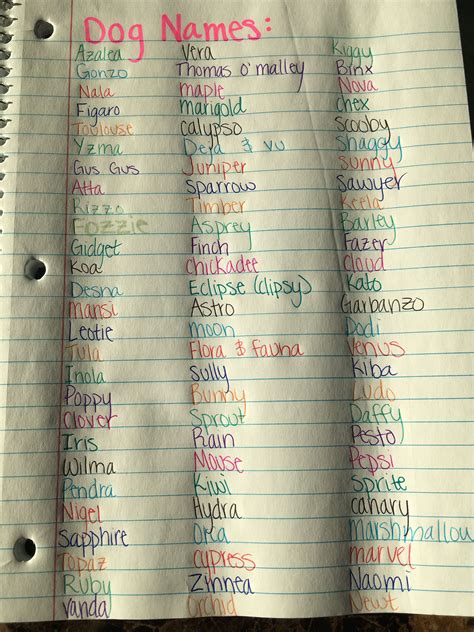 Dog Names:
Azalea Vera Kiggy
Gonzo Thomas O'malley Binx
Nala maple Nova
Figaro marigold chex
Toulouse calypso scooby
Yzma Deja & vu Shaggy
Gus Gus Juniper sunny
Atta Sparrow Sawyer
Rizzo Timber Keela
Fozzie Asprey Barley
Gidget Finch Fazer
Koa chickadee Cloud
Desna Eclipse (clipsy) Kato
Mansi Astro Garbanzo
Leotie moon Dodi
Tula Flora & fauna Venus
Inola Sully Kiba
Poppy Bunny Ludo
Clover Sprout Daffy
Iris Rain Pesto
Wilma Mouse Pepsi
Pendra Kiwi sprite
Nigel Hydra canary
Sapphire Orca Marshmallou
Topaz cypress marvel
Ruby Zinnea Naomi
Vanda Orchid Newt